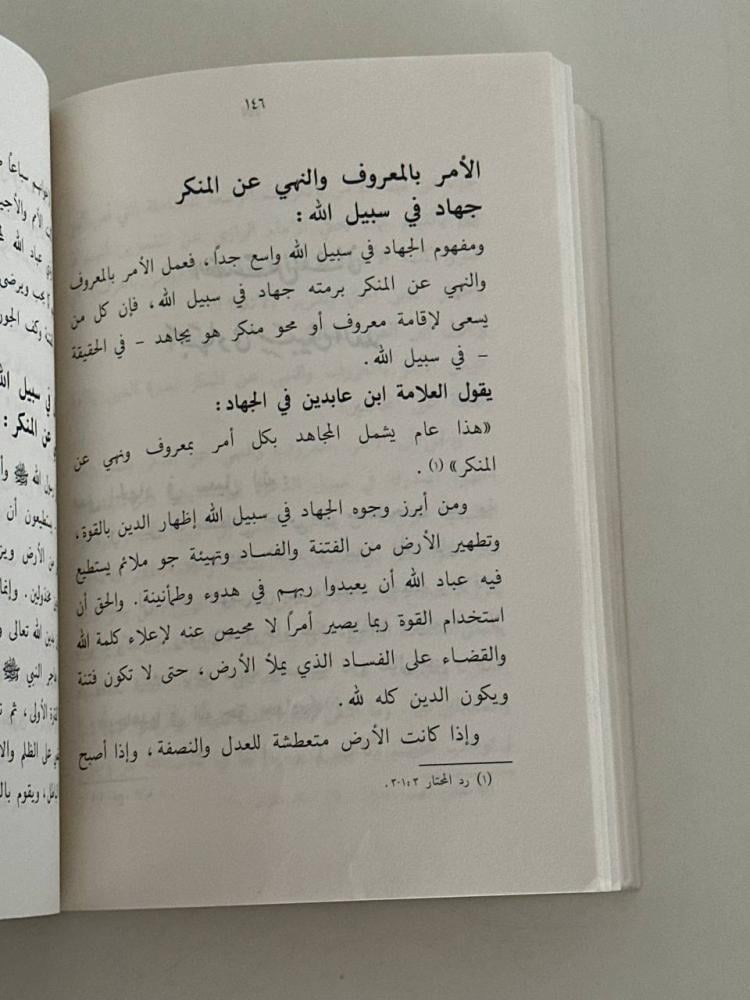 ١٤٦
الأمر بالمعروف والنهي عن المنكر
جهاد في سبيل الله :
ومفهوم الجهاد في سبيل الله واسع جداً ، فعمل الأمر بالمعروف
والنهي عن المنكر برمته جهاد في سبيل الله ، فإن كل من
يسعى لإقامة معروف أو محو منكر هو يجاهد - في الحقيقة
- في سبيل الله .
يقول العلامة ابن عابدين في الجهاد :
«هذا عام يشمل المجاهد بكل أمر بمعروف ونهي عن
المنكر» (١) .
ومن أبرز وجوه الجهاد في سبيل الله إظهار الدين بالقوة ،
وتطهير الأرض من الفتنة والفساد وتهيئة جو ملائم يستطيع
فيه عباد الله أن يعبدوا ربهم في هدوء وطمأنينة . والحق أن
استخدام القوة ربما يصير أمراً لا محيص عنه لإعلاء كلمة الله
والقضاء على الفساد الذي يملأ الأرض ، حتى لا تكون فتنة
ويكون الدين كله لله .
وإذا كانت الأرض متعطشة للعدل والنصفة ، وإذا أصبح
(١) رد المحتار
في سبيل الله
عن المنكر :
رسول الله ﷺ
يستطيعون أن
من الأرض
مخذولين . وإنما
الله تعالى
النبي ﷺ
الأولى ، ثم
على الظلم